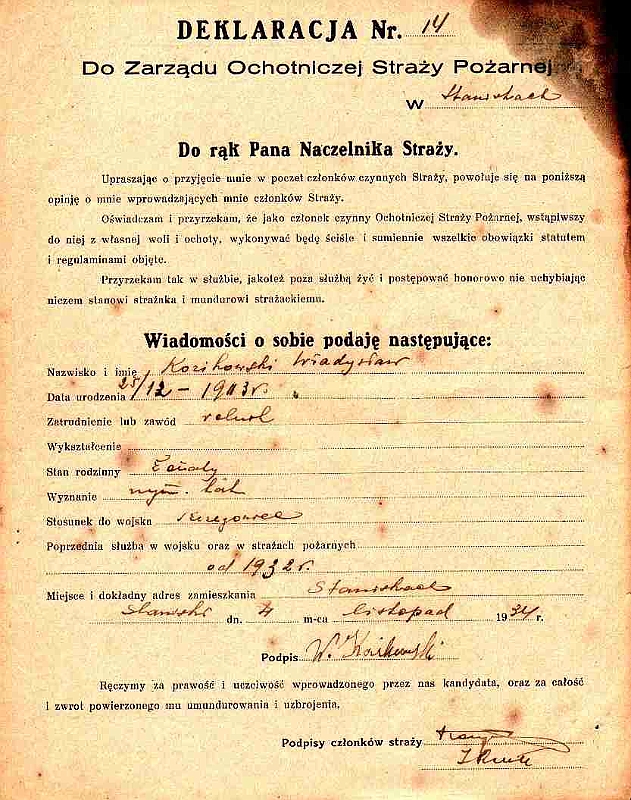 DEKLARACJA Nr. 14
Do Zarządu Ochotniczej Straży Pożarnej
w Staniskach
Do rąk Pana Naczelnika Straży.
Upraszając o przyjęcie mnie w poczet członków czynnych Straży, powołuję się na poniższą
opinję o mnie wprowadzających mnie członków Straży.
Oświadczam i przyrzekam, że jako członek czynny Ochotniczej Straży Pożarnej, wstąpiwszy
do niej z własnej woli i ochoty, wykonywać będę ściśle i sumiennie wszelkie obowiązki statutem
i regulaminami objęte.
Przyrzekam tak w służbie, jakoteż poza służbą żyć i postępować honorowo nie uchybiając
niczem stanowi strażaka i mundurowi strażackiemu.
Wiadomości o sobie podaję następujące:
Nazwisko i imię Kozikowski Władysław
Data urodzenia 25/12 - 1913 r.
Zatrudnienie lub zawód
Wykształcenie
Stan rodzinny Żonaty
Wyznanie rzym. kat
Stosunek do wojska
Poprzednia służba w wojsku oraz w strażach pożarnych
od 1932 r.
Miejsce i dokładny adres zamieszkania Staniskach
dn. 4 m-ca listopad 1934 r.
Podpis W. Kozikowski
Ręczymy za prawość i uczciwość wprowadzonego przez nas kandydata, oraz za całość
i zwrot powierzonego mu umundurowania i uzbrojenia,
Podpisy członków straży